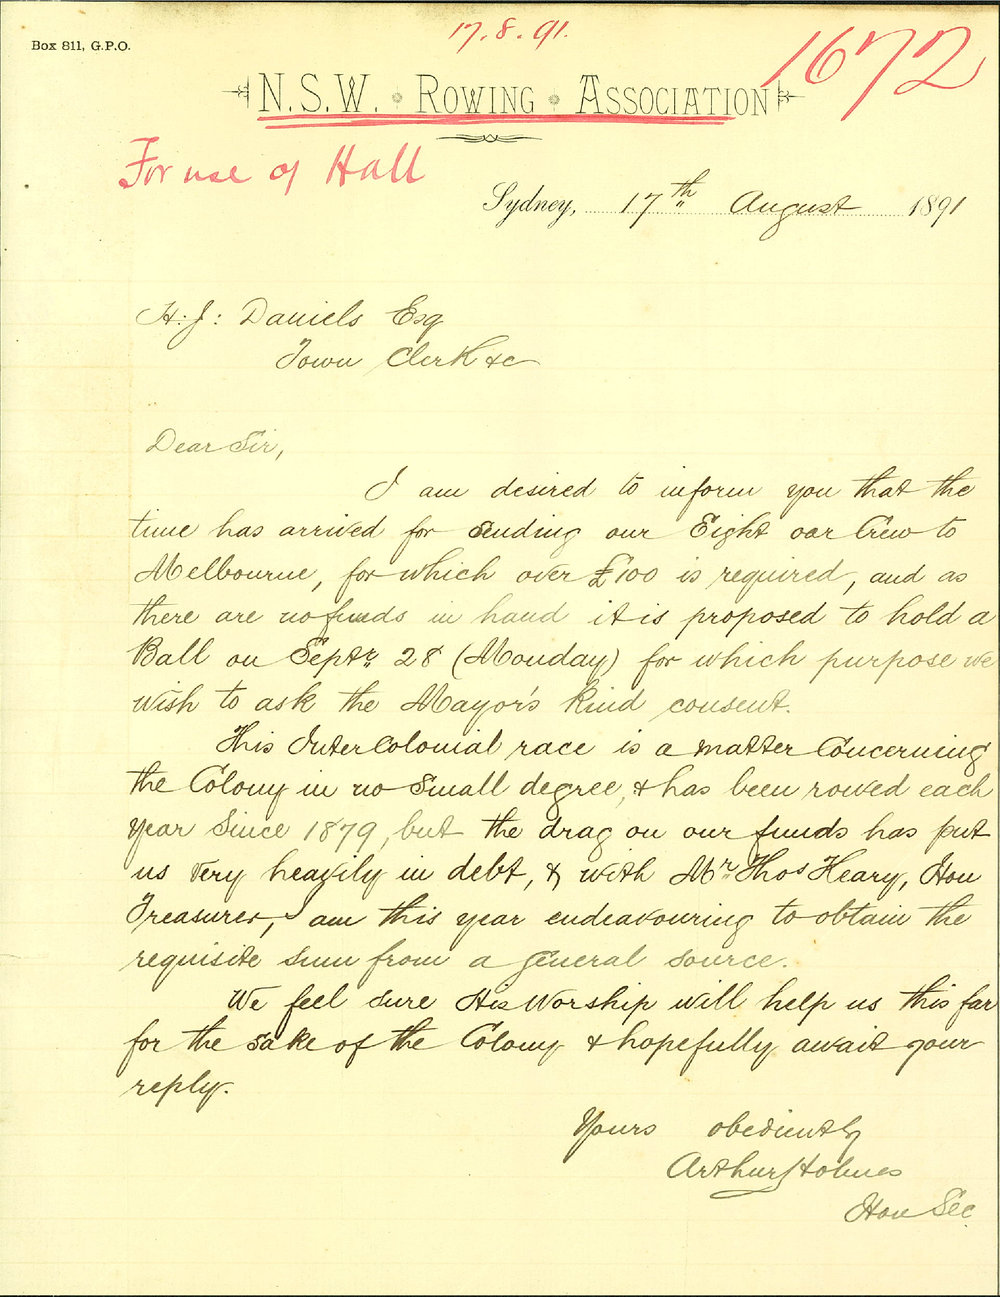 17.8.91.
1672
Box 811, G.P.O.
N.S.W. Rowing Association
For use of Hall
Sydney, 17th August 1891
H. J: Daniels Esq
Town Clerk &c
Dear Sir,
I am desired to inform you that the
time has arrived for sending our Eight oar Crew to
Melbourne, for which over £100 is required, and as
there are no funds in hand it is proposed to hold a
Ball on Septr. 28 (Monday) for which purpose we
wish to ask the Mayor's kind consent.
This InterColonial race is a matter Concerning
the Colony in no Small degree, & has been rowed each
year Since 1879, but the drag on our funds has put
us very heavily in debt, & with Mr. Thos Heary, Hon
Treasurer, am this year endeavouring to obtain the
requisite sum from a general source.
We feel sure His Worship will help us this far
for the sake of the Colony & hopefully await your
reply.
Yours obediently
Arthur Holmes
Hon Sec